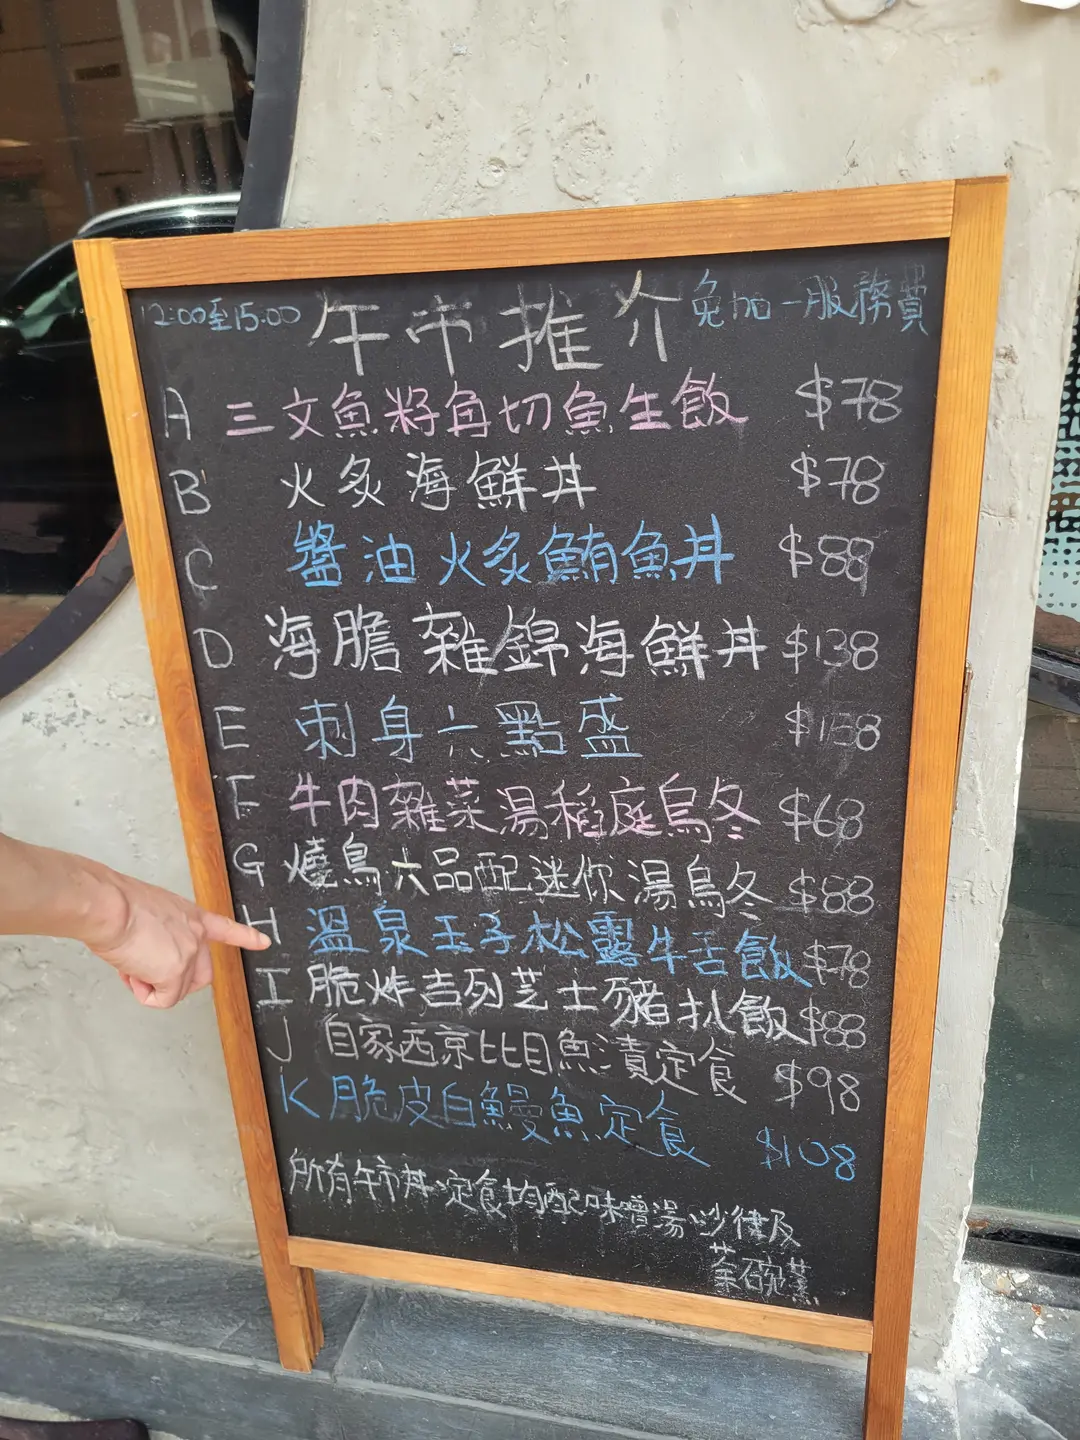 12:00至15:00 午市推介 免加一服務費
A 三文魚籽角切魚生飯 $78
B 火炙海鮮丼 $78
C 醬油火炙鮪魚丼 $88
D 海膽雜錦海鮮丼 $138
E 刺身六點盛 $138
F 牛肉雜菜湯稻庭烏冬 $68
G 燒鳥六品配迷你湯烏冬 $88
H 溫泉玉子松露牛舌飯 $78
I 脆炸吉列芝士豬扒飯 $88
J 自家西京比目魚漬定食 $98
K 脆皮白鰻魚定食 $108
所有午市丼.定食均配味噌湯沙律及
茶碗蒸